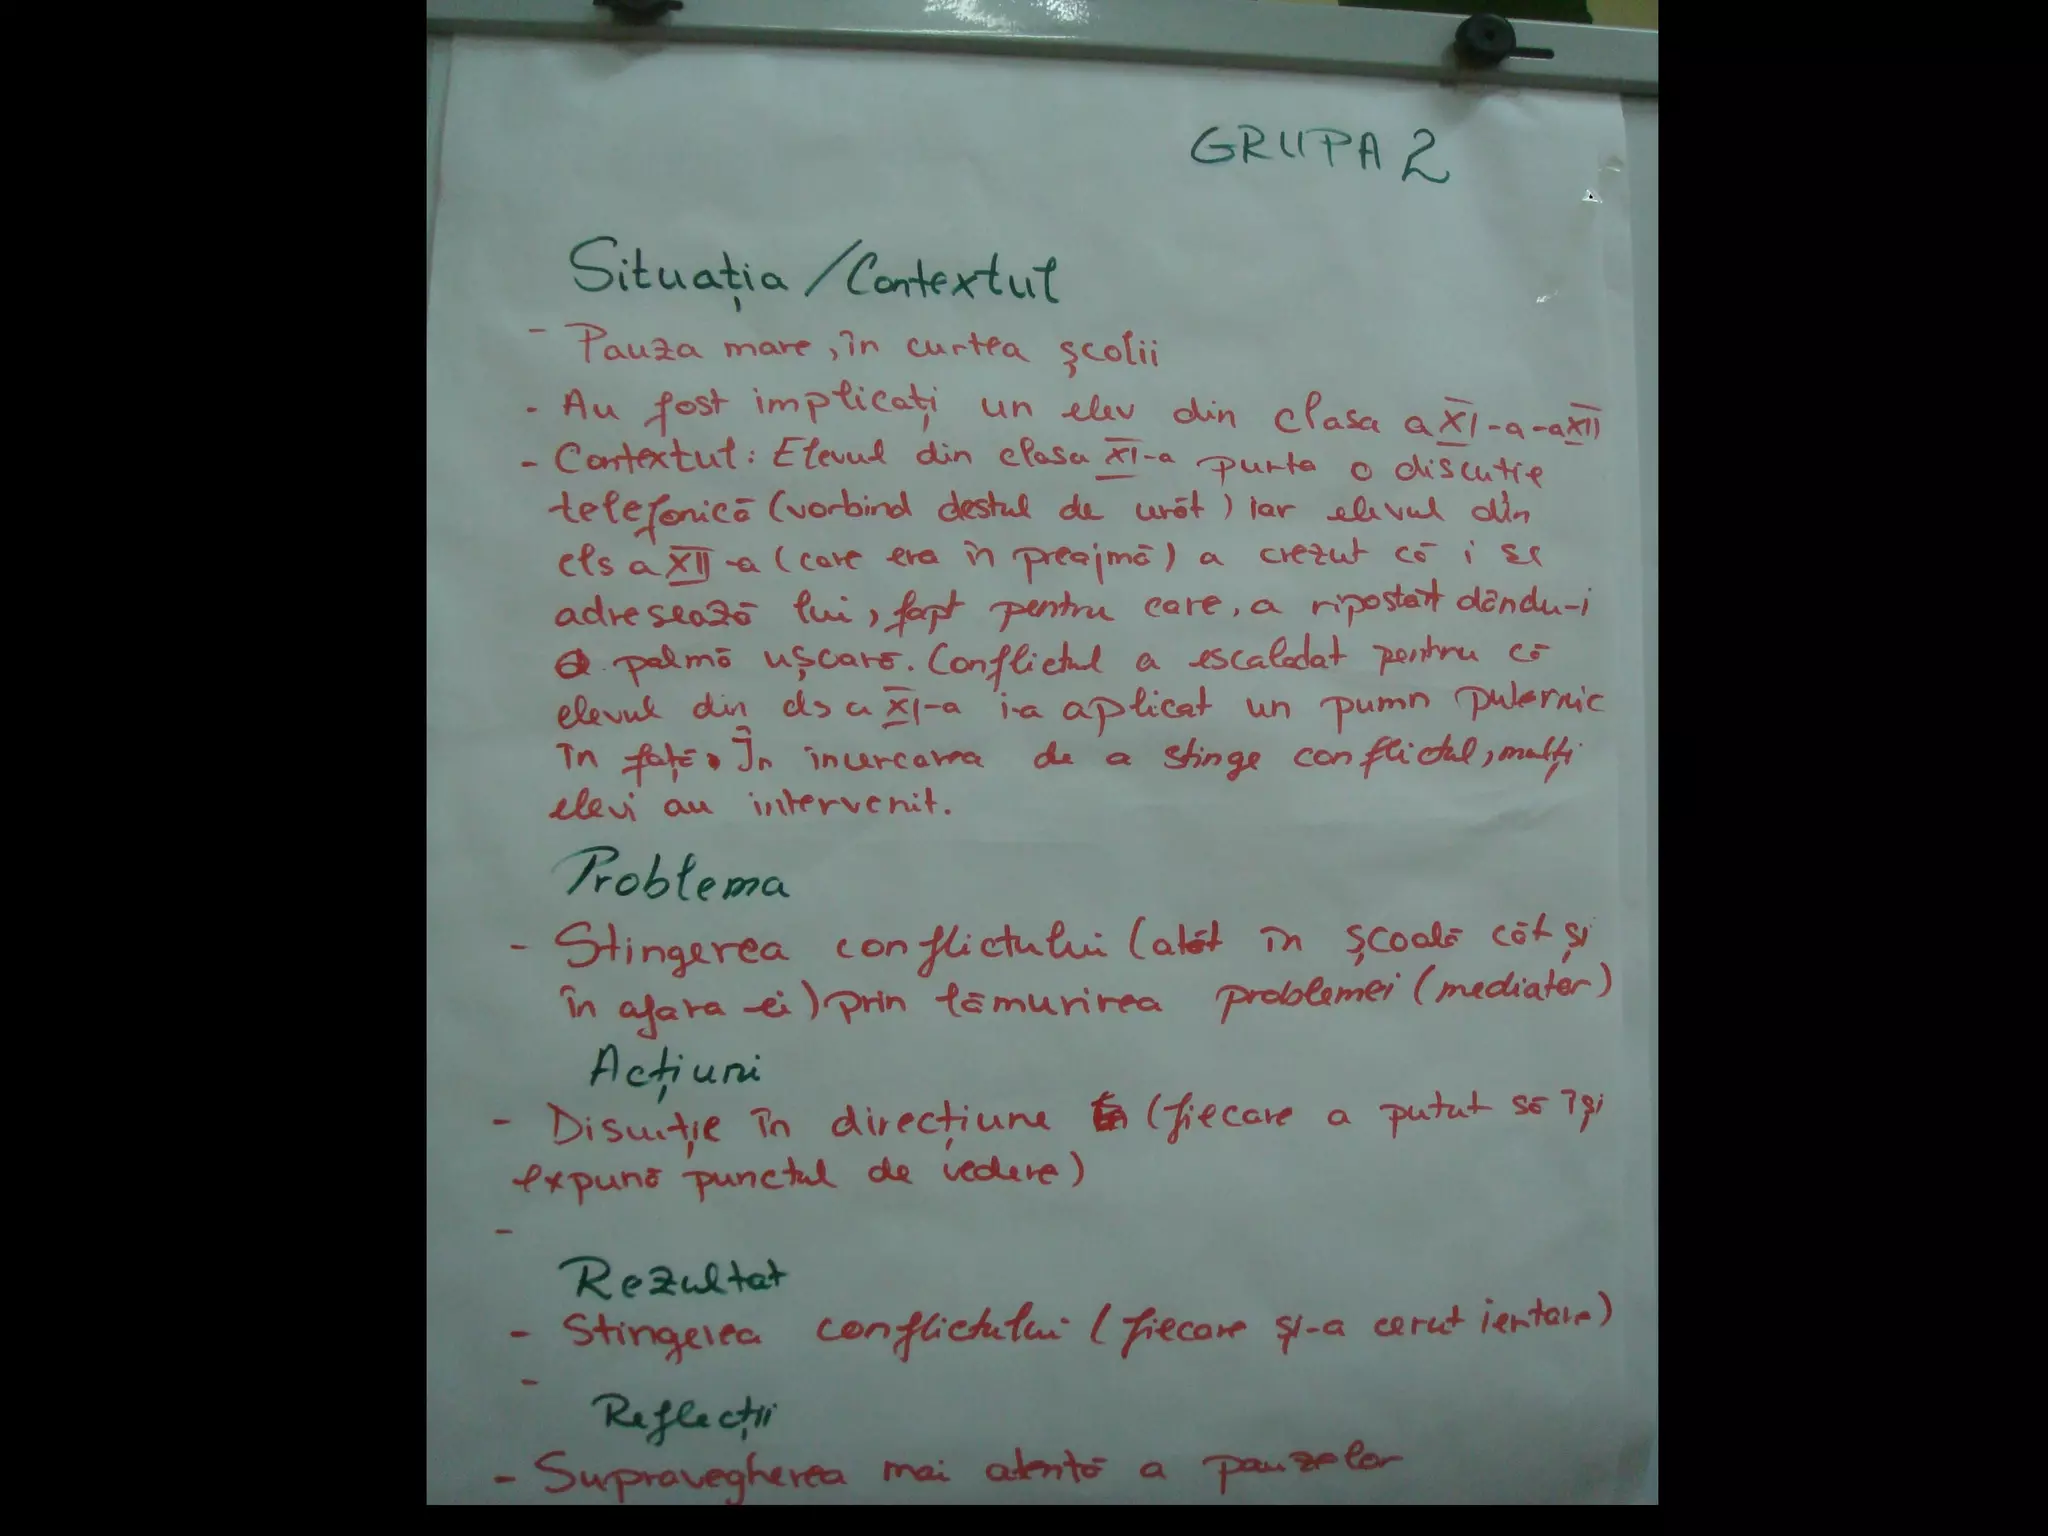 GRUPA 2
Situația/Contextul
- Pauza mare, în curtea școlii
- Au fost implicați un elev din clasa a XI-a-a XII
- Contextul: Elevul din clasa XI-a purta o discuție
telefonică (vorbind destul de urât) iar elevul din
cls a XII-a (care era în preajmă) a crezut că i se
adresează lui, fapt pentru care, a ripostat dându-i
o palmă ușcară. Conflictul a escaladat pentru că
elevul din cls a XI-a i-a aplicat un pumn puternic
în față. În incercarea de a stinge conflictul, mulți
elevi au intervenit.
Problema
- Stingerea conflictului (atât în școală cât și
în afara ei) prin lămurirea problemei (mediator)
Acțiuni
- Disuție în direcțiune (fiecare a putut să își
expună punctul de vedere)
-
Rezultat
- Stingerea conflictului (fiecare și-a cerut iertare)
-
Reflecții
- Supravegherea mai atentă a pauzelor